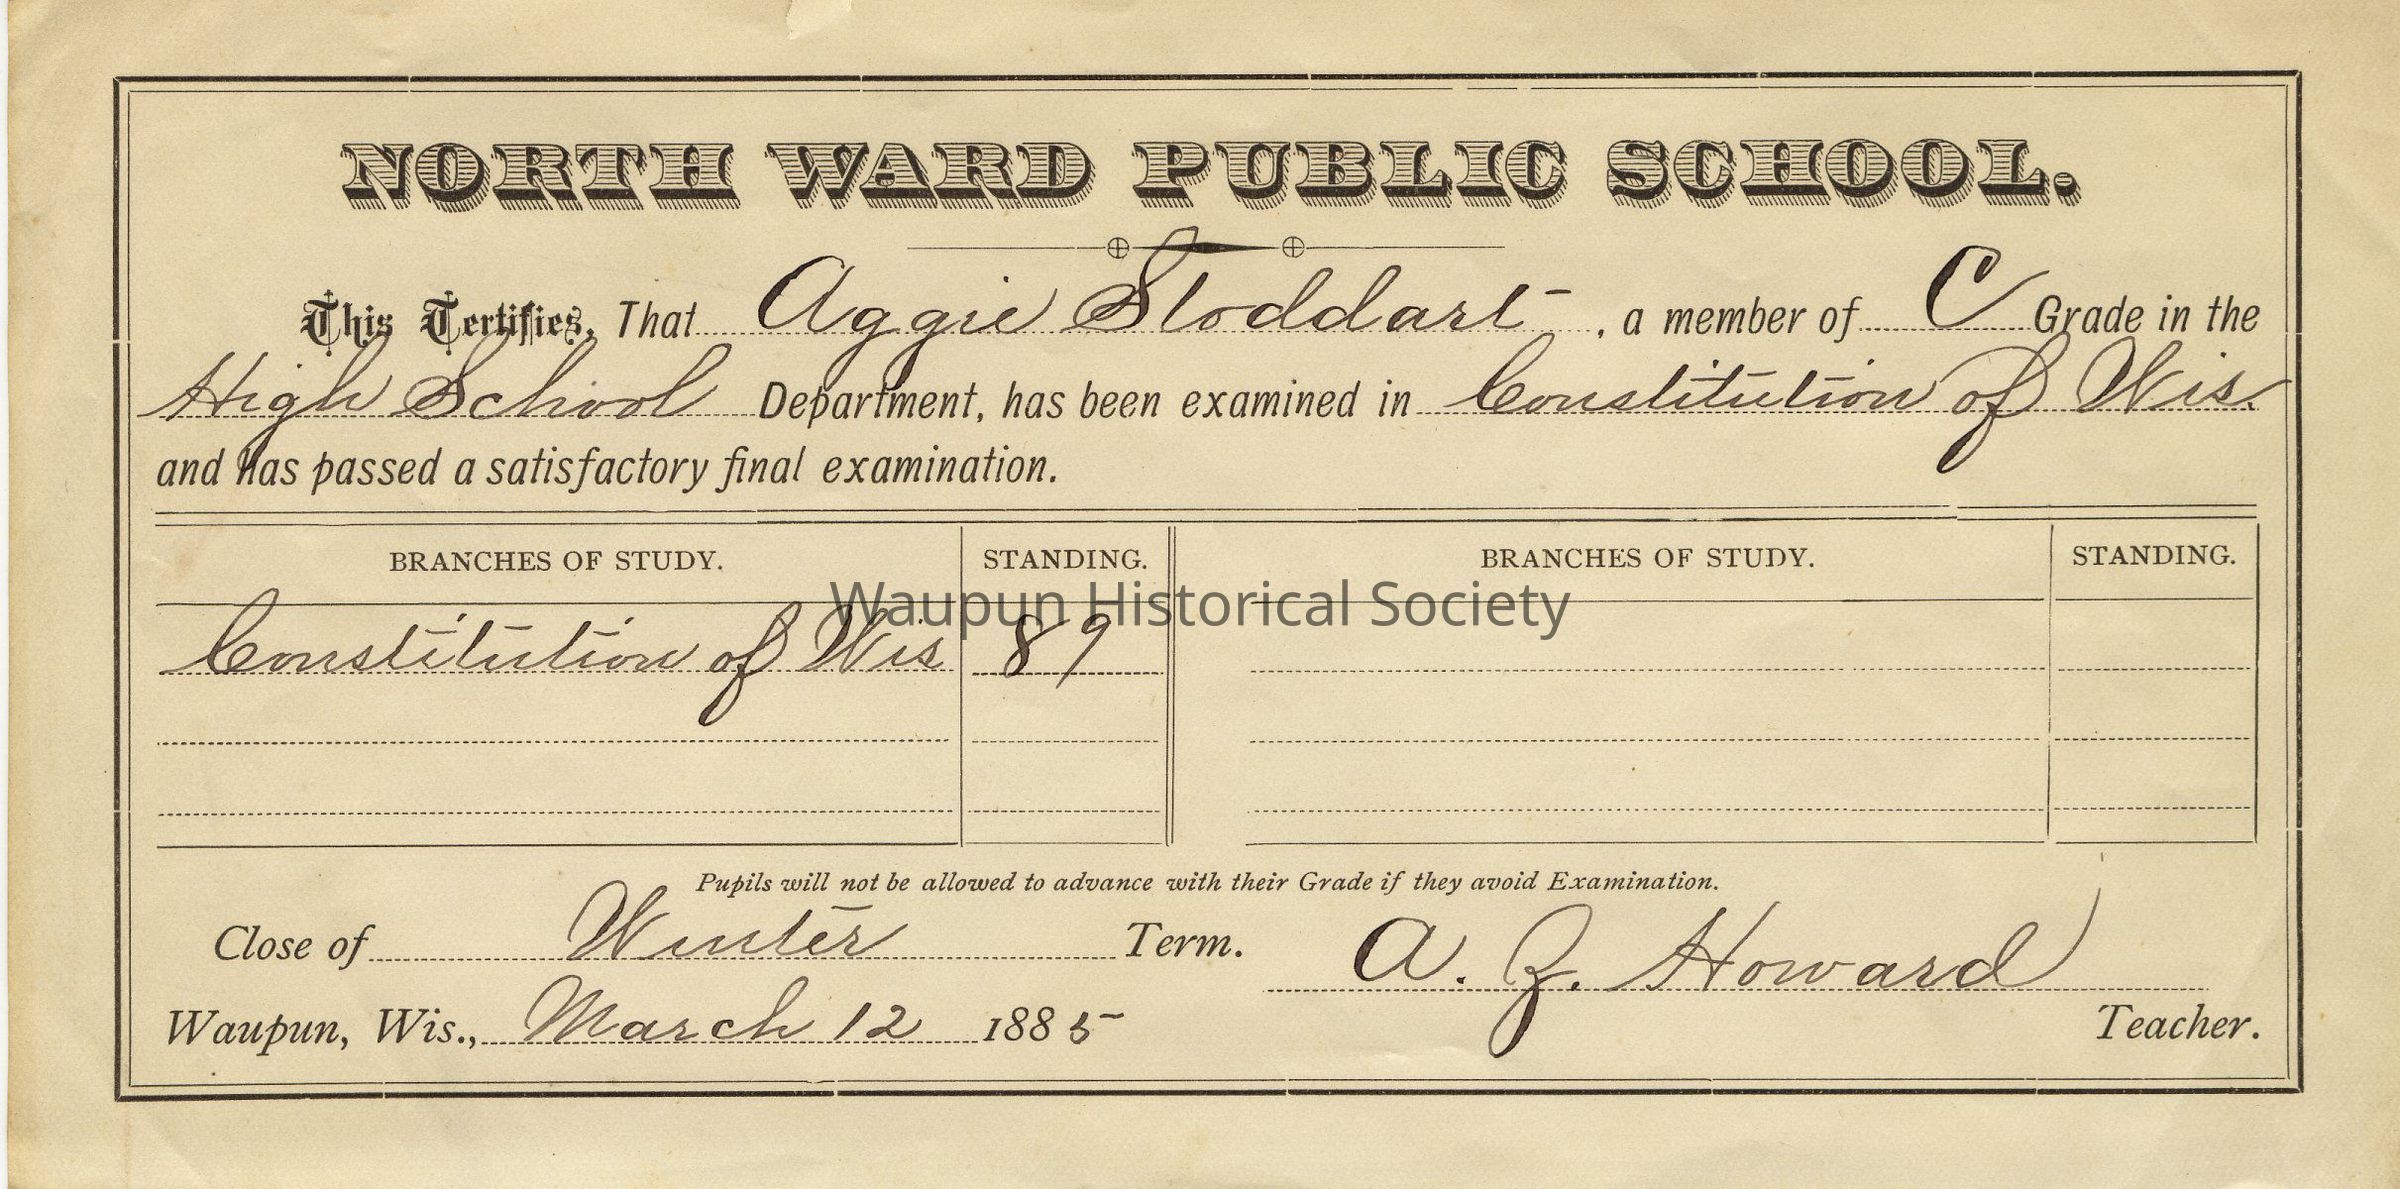 NORTH WARD PUBLIC SCHOOL.
This Certifies, That Aggie Stoddart, a member of C Grade in the
High School Department, has been examined in Constitution of Wis.
and has passed a satisfactory final examination.
BRANCHES OF STUDY. STANDING. BRANCHES OF STUDY. STANDING.
Waupun Historical Society
Constitution of Wis 89
Pupils will not be allowed to advance with their Grade if they avoid Examination.
Close of Winter Term. A. Z. Howard
Waupun, Wis., March 12 1885 Teacher.